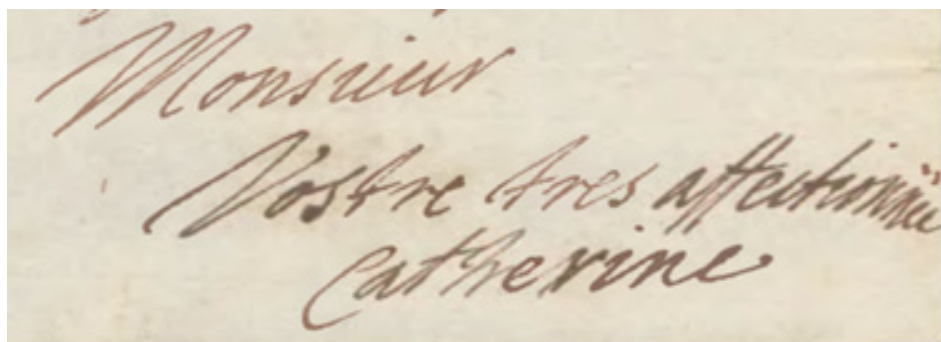 Monsieur
Vostre tres affectionnée
Catherine